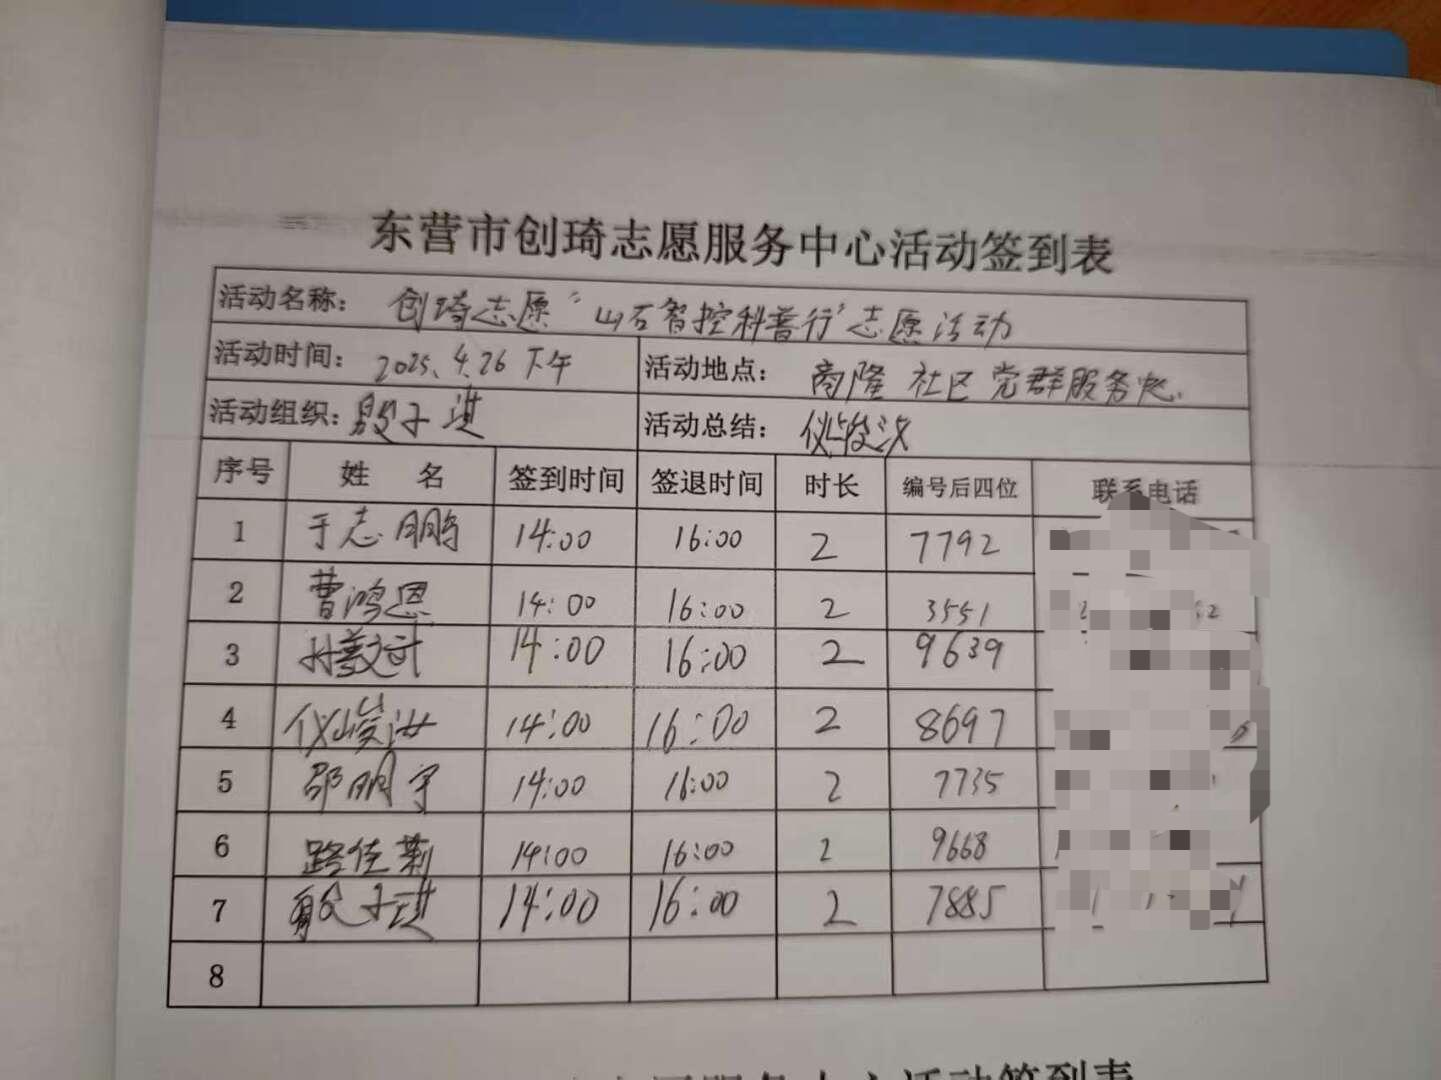 东营市创琦志愿服务中心活动签到表
活动名称： 创琦志愿“山石智控科普行”志愿活动
活动时间： 2025.4.26 下午 活动地点： 商隆 社区 党群服务
活动组织： 殷子淇 活动总结： 仪峻汝
序号 姓 名 签到时间 签退时间 时长 编号后四位 联系电话
1 于志鹏 14:00 16:00 2 7792
2 曹鸿恩 14:00 16:00 2 3551
3 14:00 16:00 2 9639
4 仪峻汝 14:00 16:00 2 8697
5 邵明宇 14:00 16:00 2 7735
6 路佳莉 14:00 16:00 2 9668
7 殷子淇 14:00 16:00 2 7885
8
活动签到表